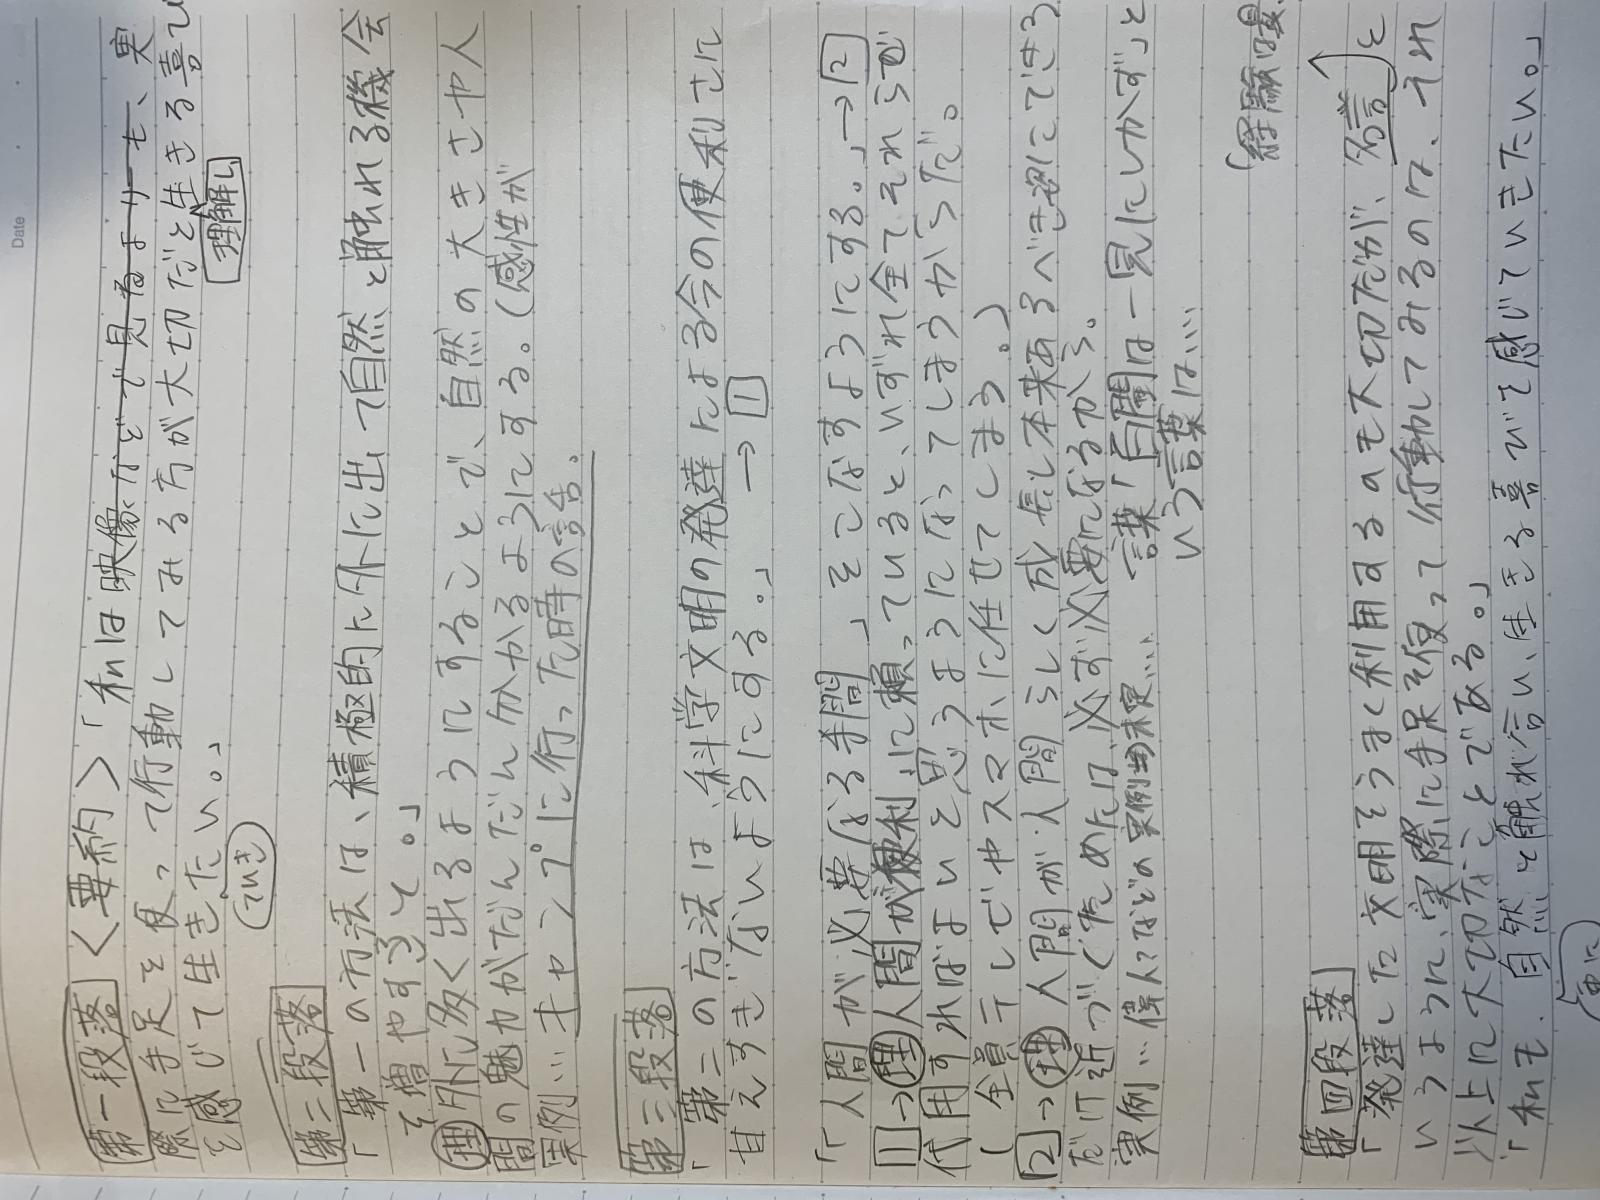 Date
第一段落 <要約>「私は映像などで見るよりも、実
際に手足を使って行動してみる方が大切だと生きる喜び
理解し
を感じて生きたい。」
ていき
第二段落
「第一の方法は、積極的に外に出て自然と触れる機会
を増やすこと。」
理 外に多く出るようにすることで、自然の大きさや人
間の魅力がだんだん分かるようにする。(感性が
実例…キャンプに行った時の話。
第三段落
「第二の方法は、科学文明の発達による今の便利さに
甘えすぎないようにする。」 → 1
「「人間が必要なる手間」をこなすようにする。」→ 2
1→理 人間が便利に頼っていると、いずれ全てそれらで
代用すればよいと思うようになってしまうからだ。
(全員テレビやスマホに任せてしまう。)
2→理 人間が人間らしく成長し本来あるべき姿にできる
だけ近づくためには、必ず必要になるから。
実例…偉人などの実例 言葉「百聞は一見にしかず」と
いう言葉は…
(経験は最
第四段落
「発達した文明をうまく利用するのも大切だが、名言 と
いうように、実際に手足を使って行動してみるのは、それ
以上に大切なことである。」
「私も、自然と触れ合い、生きる喜びて感じていきたい。」
更に